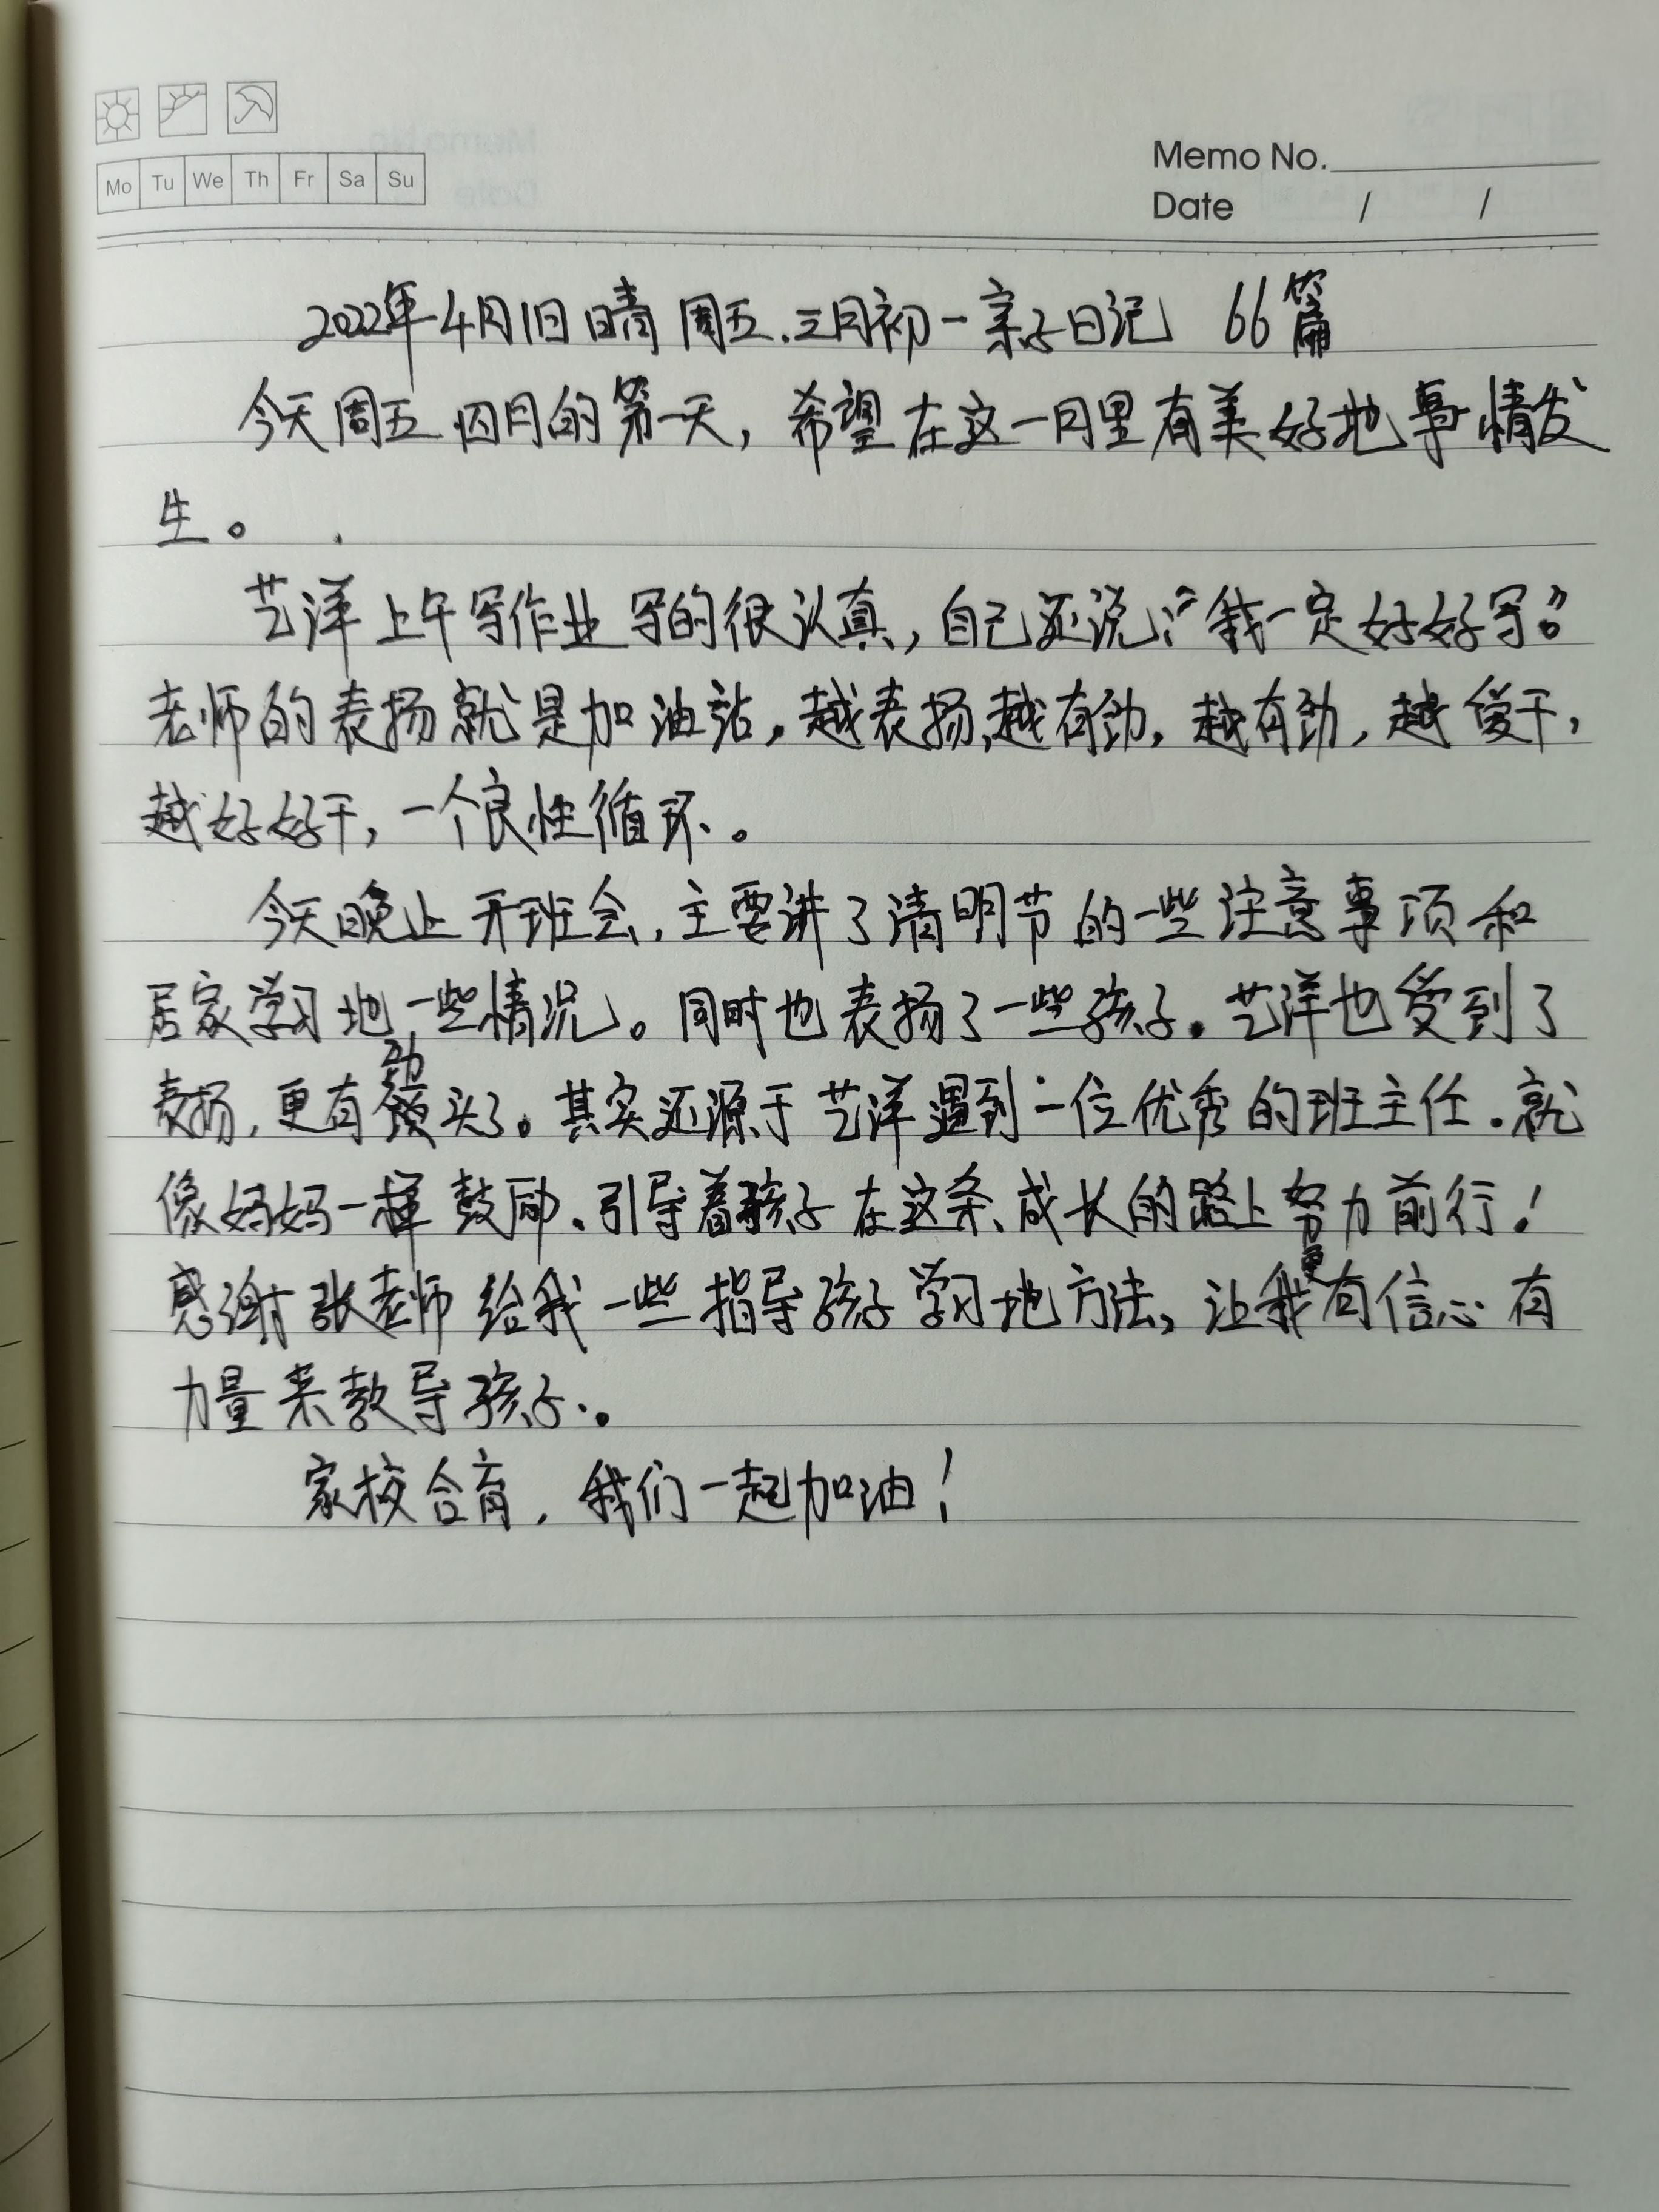 Mo Tu We Th Fr Sa Su
Memo No.
Date / /
2022年4月1日 晴 周五.三月初一亲子日记 66篇
今天周五四月的第一天，希望在这一月里有美好地事情发
生。
艺洋上午写作业写的很认真，自己还说：“我一定好好写”。
老师的表扬就是加油站。越表扬，越有劲，越有劲，越爱干，
越好好干，一个良性循环。
今天晚上开班会，主要讲了清明节的一些注意事项和
居家学习地一些情况。同时也表扬了一些孩子。艺洋也受到了
表扬，更有劲头了。其实还源于艺洋遇到一位优秀的班主任.就
像妈妈一样鼓励、引导着孩子在这条成长的路上努力前行！
感谢张老师给我一些指导孩子学习地方法，让我更有信心有
力量来教导孩子。
家校合育，我们一起加油！